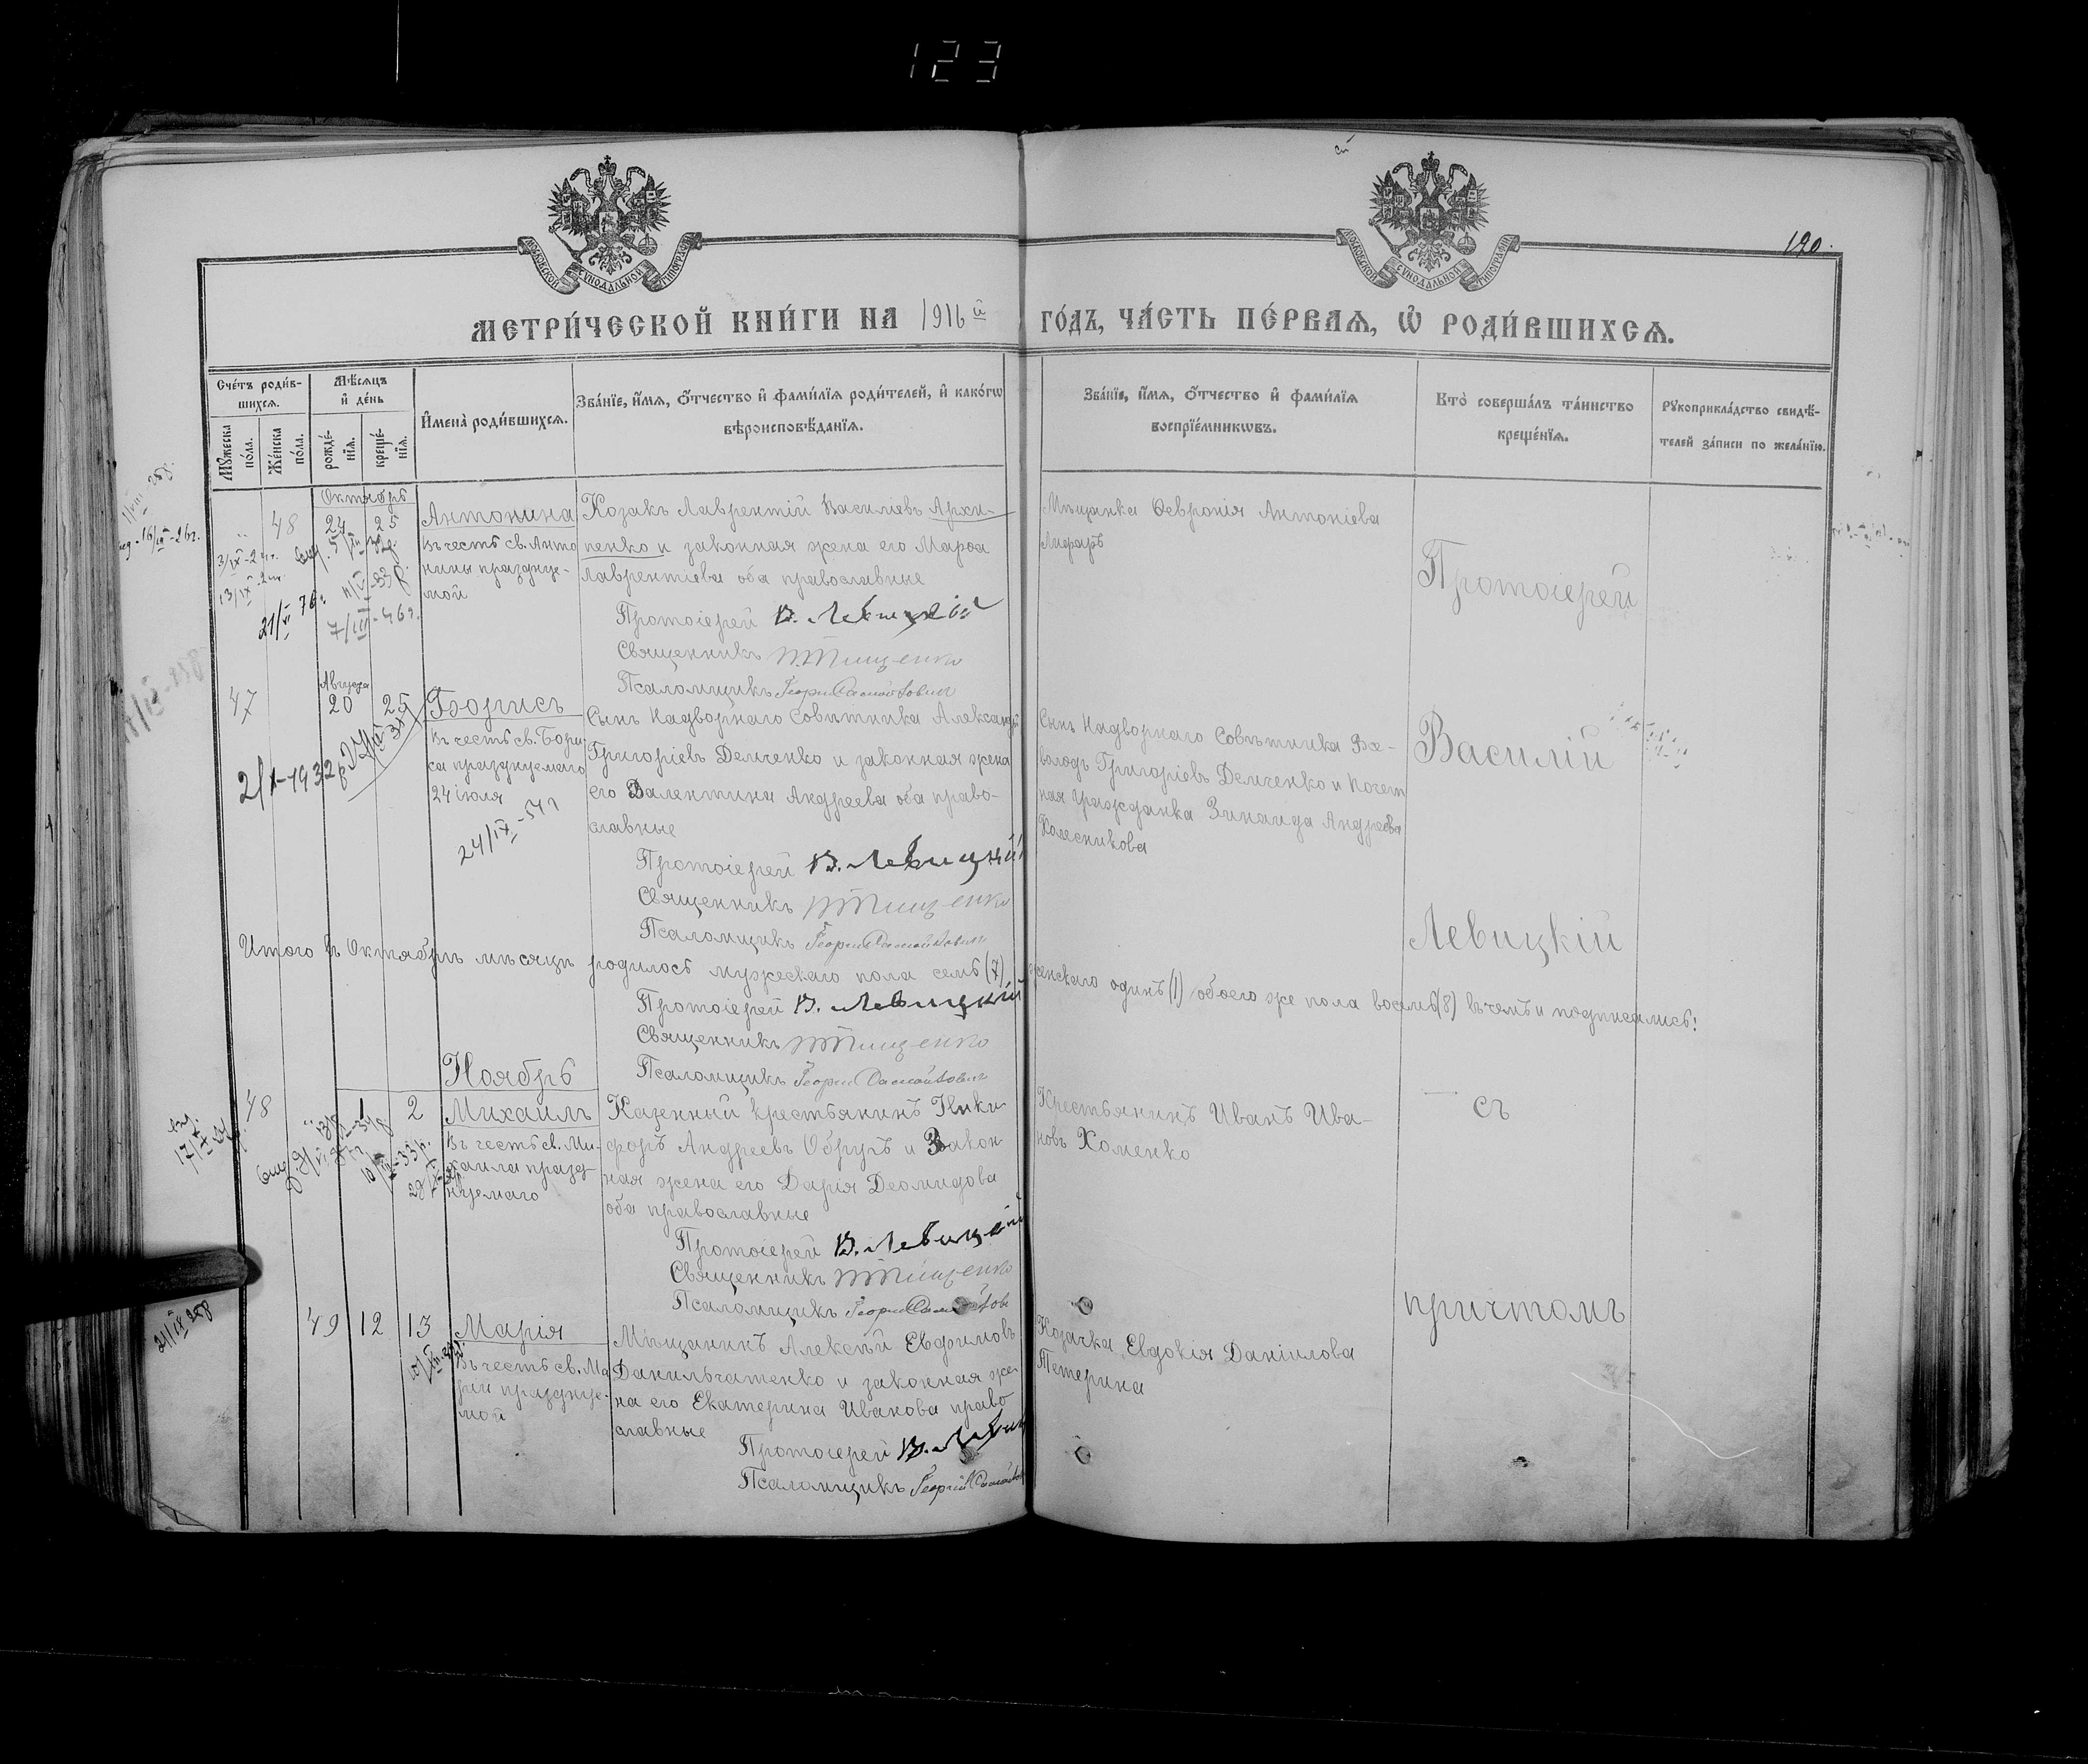 123
МОСКОВСКОЙ СѴНОДАЛЬНОЙ ТИПОГРАФІИ
МОСКОВСКОЙ СѴНОДАЛЬНОЙ ТИПОГРАФІИ
190.
МЕТРИ́ЧЕСКОЙ КНИ́ГИ НА 1916й ГО́ДЪ, ЧА́СТЬ ПЕ́РВАѦ, Ѡ РОДИ́ВШИХСѦ.
Сче́тъ роди́в-
шихсѧ.
Мꙋ́жеска по́ла.
Же́нска по́ла.
Мѣ́сѧцъ и де́нь
рожде́-нїѧ.
креще́-нїѧ.
Имена̀ роди́вшихсѧ.
Зва́нїе, и́мѧ, ѻ́тчество и фами́лїѧ роди́телей, и како́гѡ
вѣроисповѣ́данїѧ.
Зва́нїе, и́мѧ, ѻ́тчество и фами́лїѧ
воспрїе́мникѡвъ.
Кто̀ соверша́лъ та́инство
креще́нїѧ.
Рꙋкоприкла́дство свидѣ́-
телей за́писи по жела́нїю.
Октябрь
48 24 25 Антонина
Въ честь св. Анто
нины празднуе-
мой
Козакъ Лаврентій Василіевъ Архи-
пенко и законная жена его Марѳа
Лаврентіева оба православные
Протоіерей В. Левицкій
Священникъ Пищенко
Псаломщикъ Георгій
Мѣщанка Ѳевронія Антоніева
Лифаръ
21/VI 76г.
7/III-46г.
Августа
47 20 25 Борисъ
Въ честь св. Бори
са празднуемаго
24 іюля
24/IX-54г
2/X-1932
Сынъ Надворнаго Совѣтника Александръ
Григоріевъ Демченко и законная жена
его Валентина Андреева оба право-
славные
Протоіерей В. Левицкій
Священникъ Пищенко
Псаломщикъ Георгій
Сынъ Надворнаго Совѣтника Все-
володъ Григоріевъ Демченко и Почет
ная Гражданка Зинаида Андреева
Колесникова
Итого въ Октябрѣ мѣсяцѣ родилось мужескаго пола семь (7) женскаго одинъ (1) обоего же пола восемь (8) въ чемъ и подписались:
Протоіерей В. Левицкій
Священникъ Пищенко
Псаломщикъ Георгій
Ноябрь
48 1 2 Михаилъ
Въ честь св. Ми-
хаила празд
нуемаго
Казенный крестьянинъ Ники-
форъ Андреевъ Обручъ и Закон-
ная жена его Дарія Деомидова
оба православные
Протоіерей В. Левицкій
Священникъ Пищенко
Псаломщикъ Георгій
Крестьянинъ Иванъ Ива-
новъ Хоменко
49 12 13 Марія
Въ честь св. Ма
ріи празднуе-
мой
Мѣщанинъ Алексѣй Евфимовъ
Данильчатенко и законная же-
на его Екатерина Иванова право
славные
Протоіерей В.
Псаломщикъ Георгій
Козачка Евдокія Даніилова
Тетерина
Протоіерей
Василій
Левицкій
съ
причтомъ